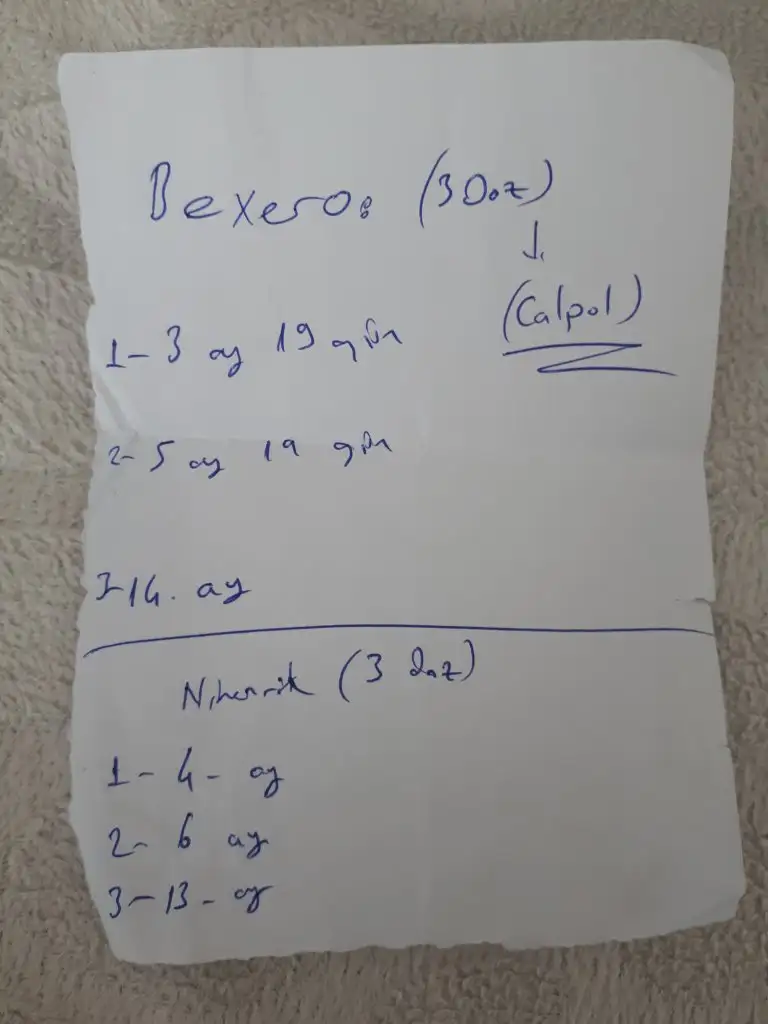 Bexero: (3 Doz)
↓
(Calpol)
1- 3 ay 19 gün
2- 5 ay 19 gün
3-14. ay
Nimenrik (3 doz)
1- 4- ay
2- 6 ay
3-13- ay